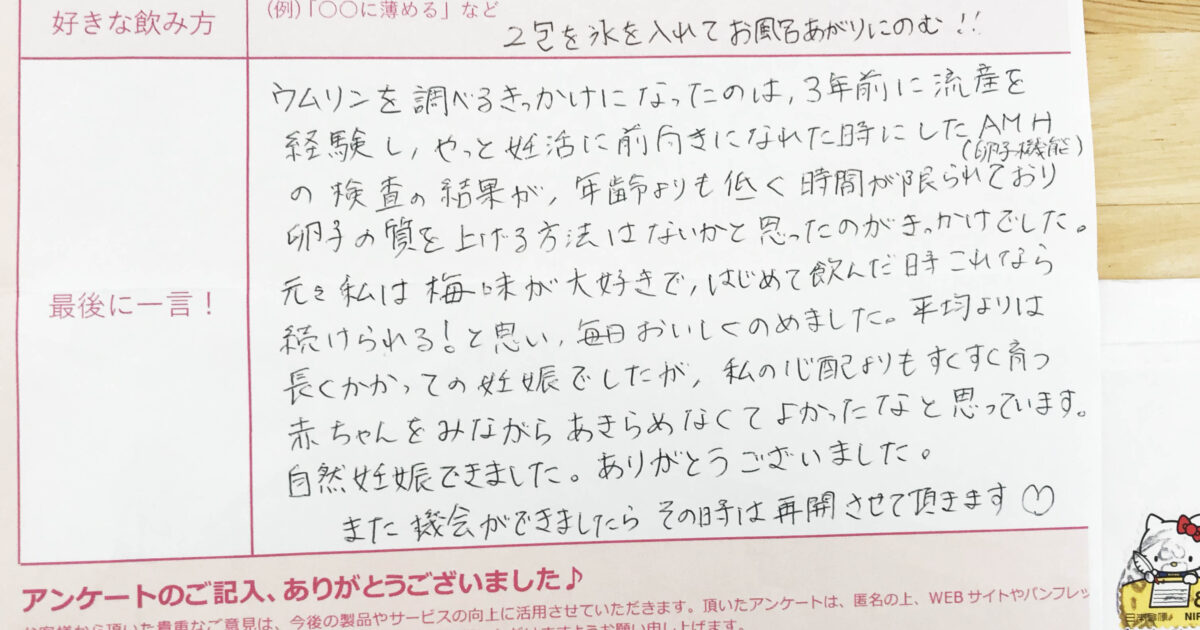 好きな飲み方
(例)「〇〇に薄める」など
2包を氷を入れてお風呂あがりにのむ!!
最後に一言!
ウムリンを調べるきっかけになったのは,3年前に流産を
経験し,やっと妊活に前向きになれた時にしたAMH
(卵子機能)
の検査の結果が,年齢よりも低く時間が限られており
卵子の質を上げる方法はないかと思ったのがきっかけでした。
元々私は梅味が大好きで,はじめて飲んだ時これなら
続けられる!と思い,毎日おいしくのめました。平均よりは
長くかかっての妊娠でしたが,私の心配よりもすくすく育つ
赤ちゃんをみながらあきらめなくてよかったなと思っています。
自然妊娠できました。ありがとうございました。
また機会ができましたらその時は再開させて頂きます♡
アンケートのご記入、ありがとうございました♪
お客様から頂いた貴重なご意見は、今後の製品やサービスの向上に活用させていただきます。頂いたアンケートは、匿名の上、WEBサイトやパンフレッ
日本郵便
NIP